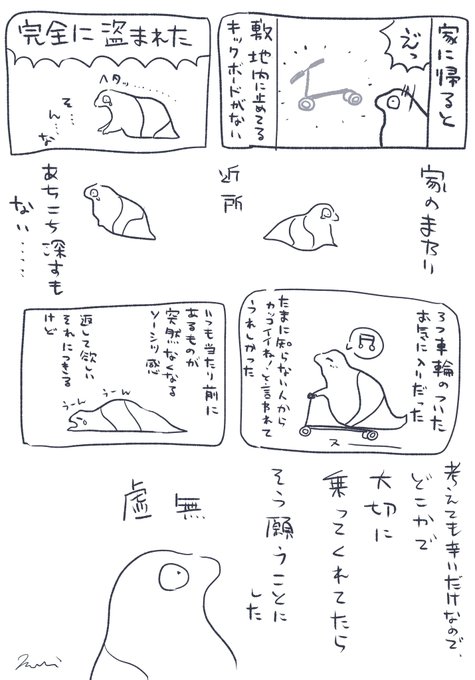 家に帰ると
えっ
敷地内に止めてる
キックボードがない
完全に盗まれた
ヘタッ…………
そ…ん…な
家のまわり
近所
あちこち探すも
ない……
3つ車輪のついた
お気に入りだった
たまに知らない人から
カッコイイね！と言われて
うれしかった
スー
いつも当たり前に
あるものが
突然なくなる
ソーシツ感
返して欲しい
それにつきる
けど
うーん
うーん
考えても辛いだけなので、
どこかで
大切に
乗ってくれてたら
そう願うことに
した
虚無